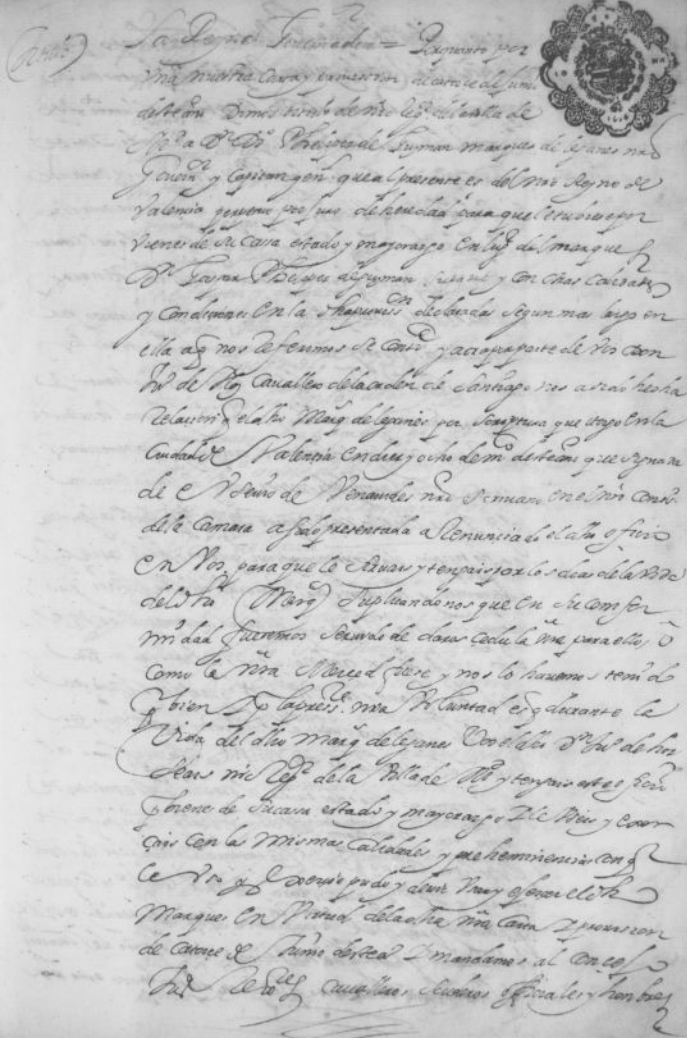 La Reyna Governadora = Por quanto por
una nuestra carta y provission de catorce de Junio
deste año Dimos titulo de nro Reg.or de la villa de
M.d a D.n Diº Phelipez de Guzman Marques de leganes nro
Gover.or y Capitan gen.l que al presente es del nro Reyno de
Valencia perpetuo por juro de heredad para que le tubiese por
vienes de su casa estado y mayorazgo en lug.r del marques
D.n Gaspar Phelipez de Guzman su y con ciertas calidades
y condiciones en la dha provission declaradas segun mas largo en
ella a q nos referimos se cont.e y aora por parte de vos Don
Ju.o de Cavallero de la orden de Santiago nos a sido hecha
relacion q el dho Marq.s de leganes por scriptura que otorgo en la
Ciudad de Valencia en diez y ocho de deste año que signada
de de Venavides nro scrivano en el nro Cons.o
de la Camara a sido presentada a renunciado el dho oficio
en Vos para que le sirvais y tengais por los dias de la vida
del dho Marq.s Suplicandonos que en su confor
midad fuesemos servido de daros cedula nra para ello, o
como la nra Merced fuese y nos lo havemos tenido
por bien Y por la press.te nra Voluntad es q durante la
Vida del dho Marq.s de leganes Vos el dho D.n Ju.o de
seais nro Reg.or de la Villa de M.d y tengais este oficio
por vienes de su casa estado y mayorazgo Y le useis y exer
çais con las mismas calidades y preheminencias con q
le usa y exerce pudo y devio usar y exercer el dho
Marques en Virtud de la dha nra Carta y provission
de catorce de Junio deste año Y mandamos al Concejo
Just.a Regidores Cavalleros Scuderos officiales y hombres